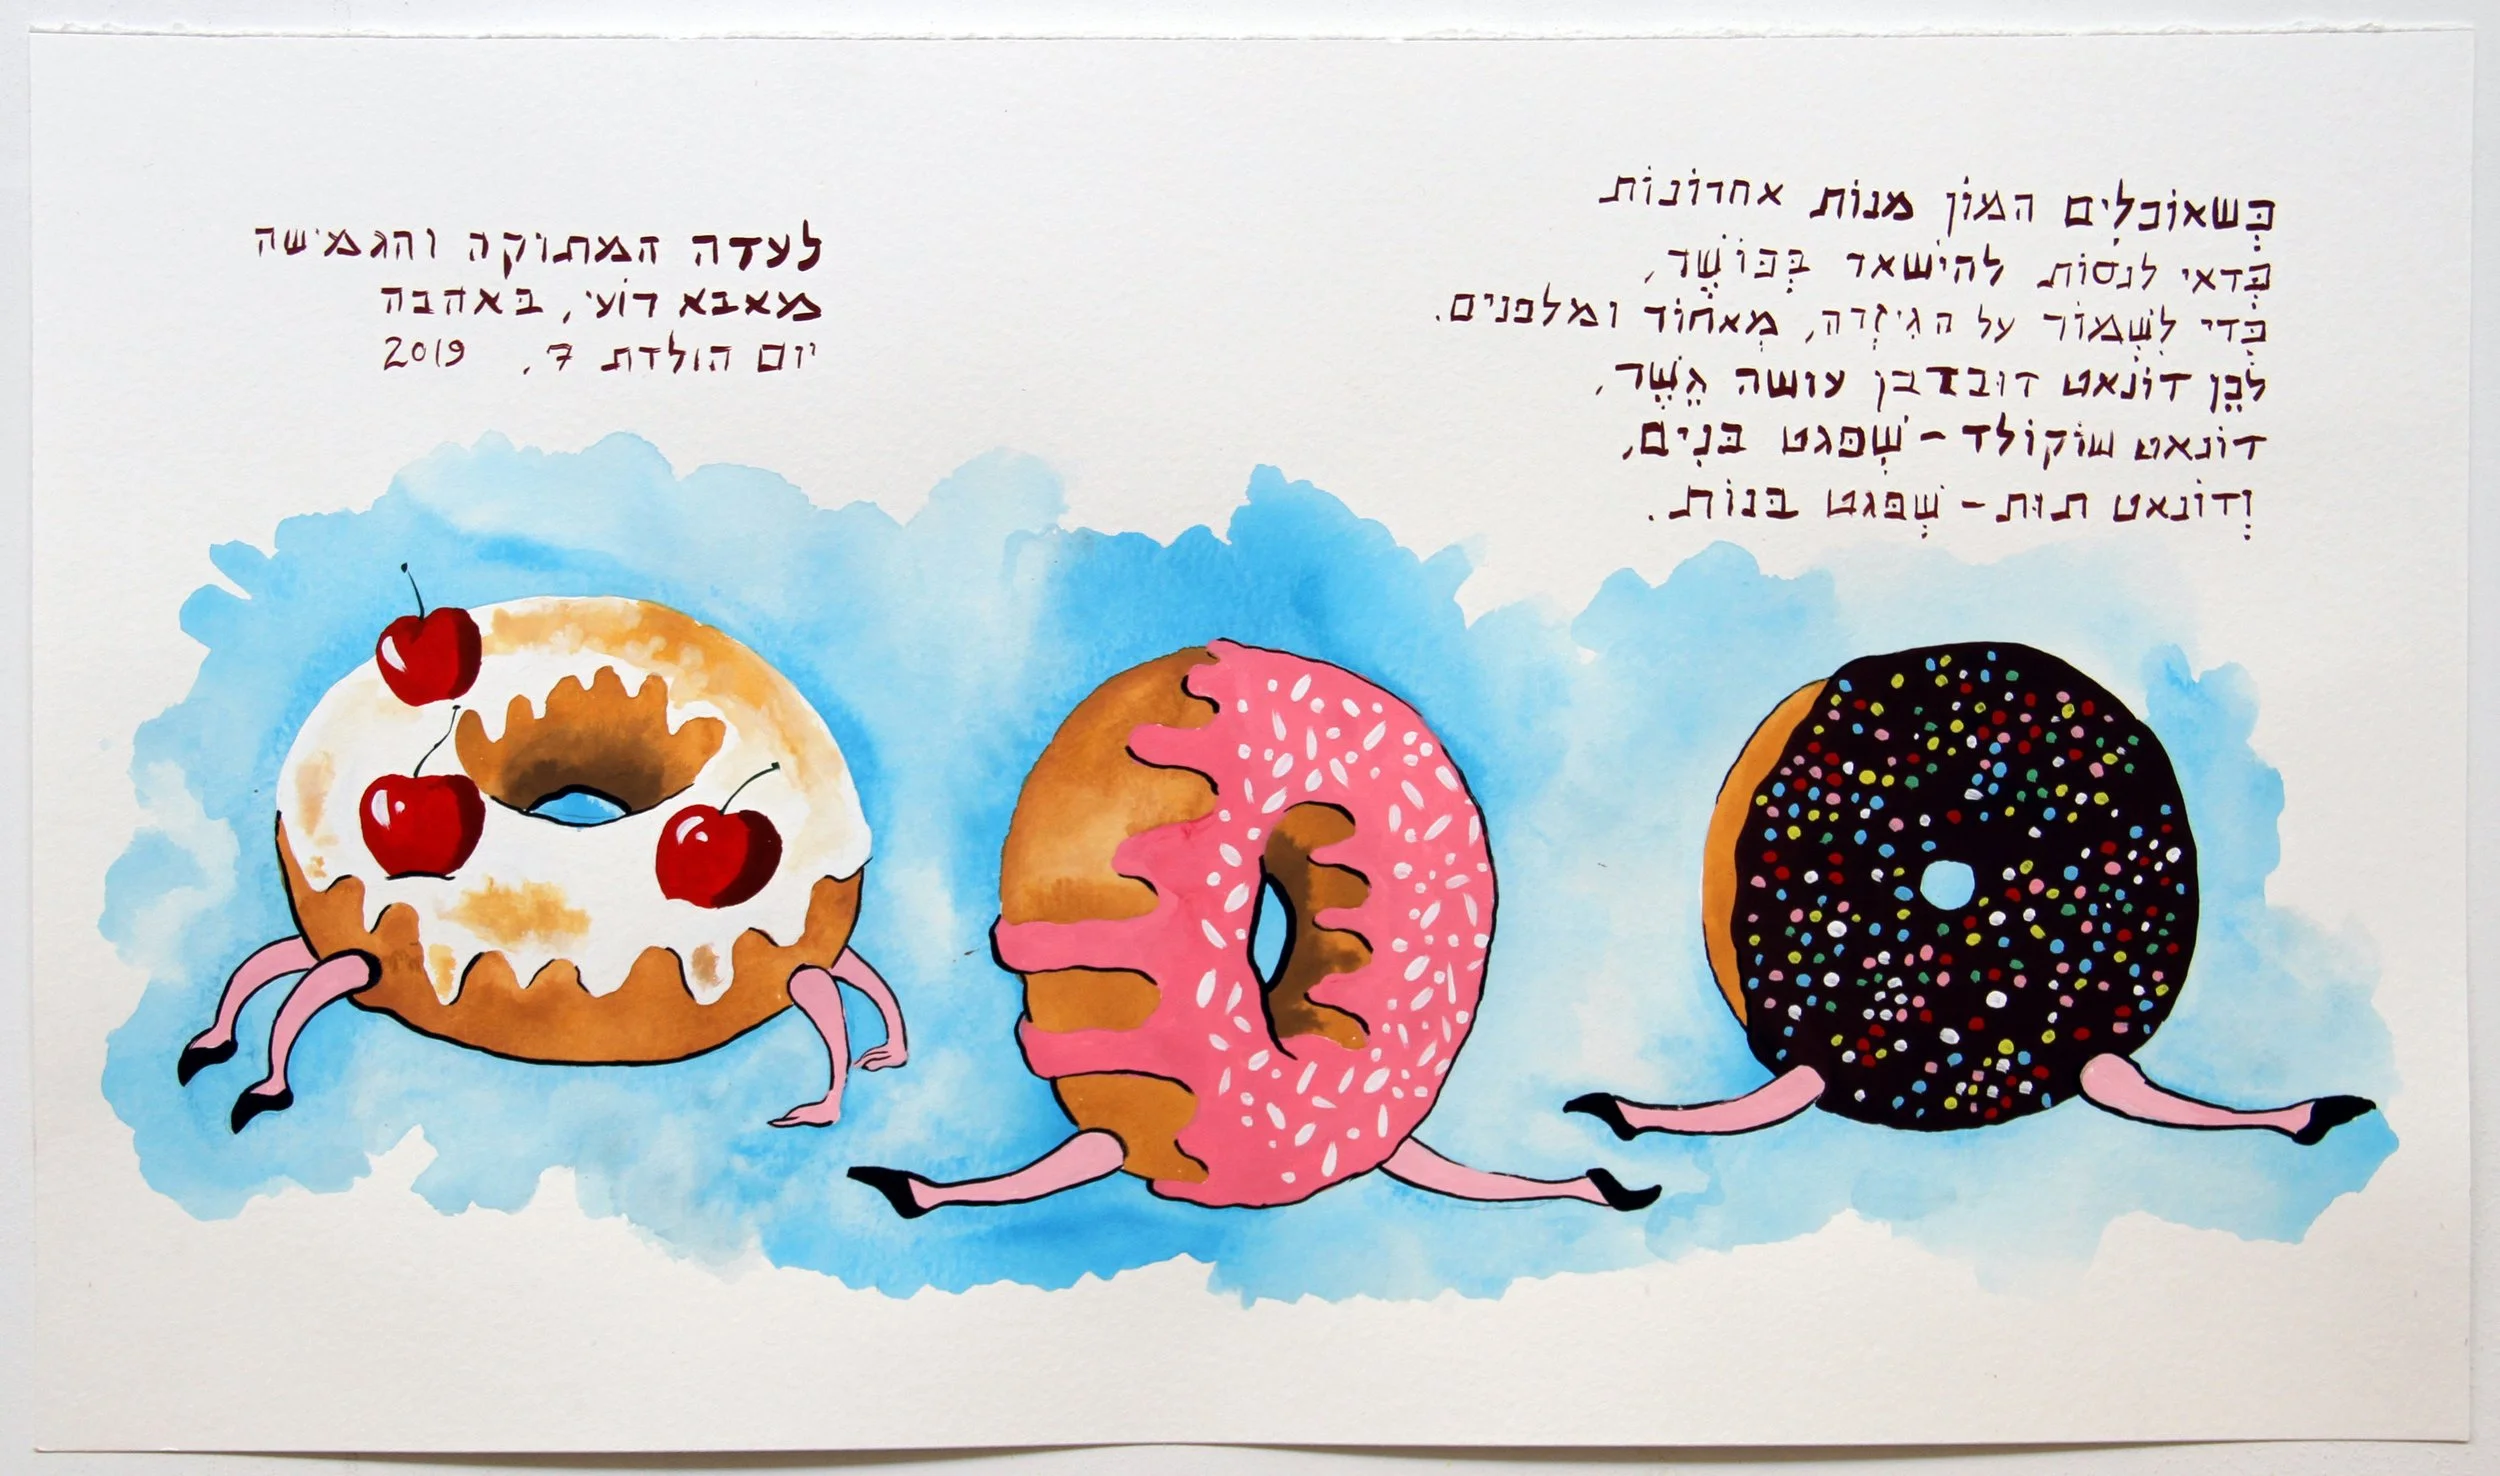 כְּשאוֹכלִים המוֹן מנוֹת אחרוֹנוֹת
כְּדאי לנסוֹת להישאר בְּכּוֹשֶׁר,
כְּדי לִשְׁמוֹר על הגִיזְרה, מְאחוֹר ומלפנים.
לכֵן דוֹנְאט דובדבן עושה גֶשֶׁר,
דוֹנאט שוֹקוֹלד - שְׁפּגט בּנִים,
וְדוֹנאט תוּת - שְׁפּגט בּנוֹת.
לעדה המתוקה והגמישה
מאבא רוֹעי, בּאהבה
יום הולדת 7, 2019